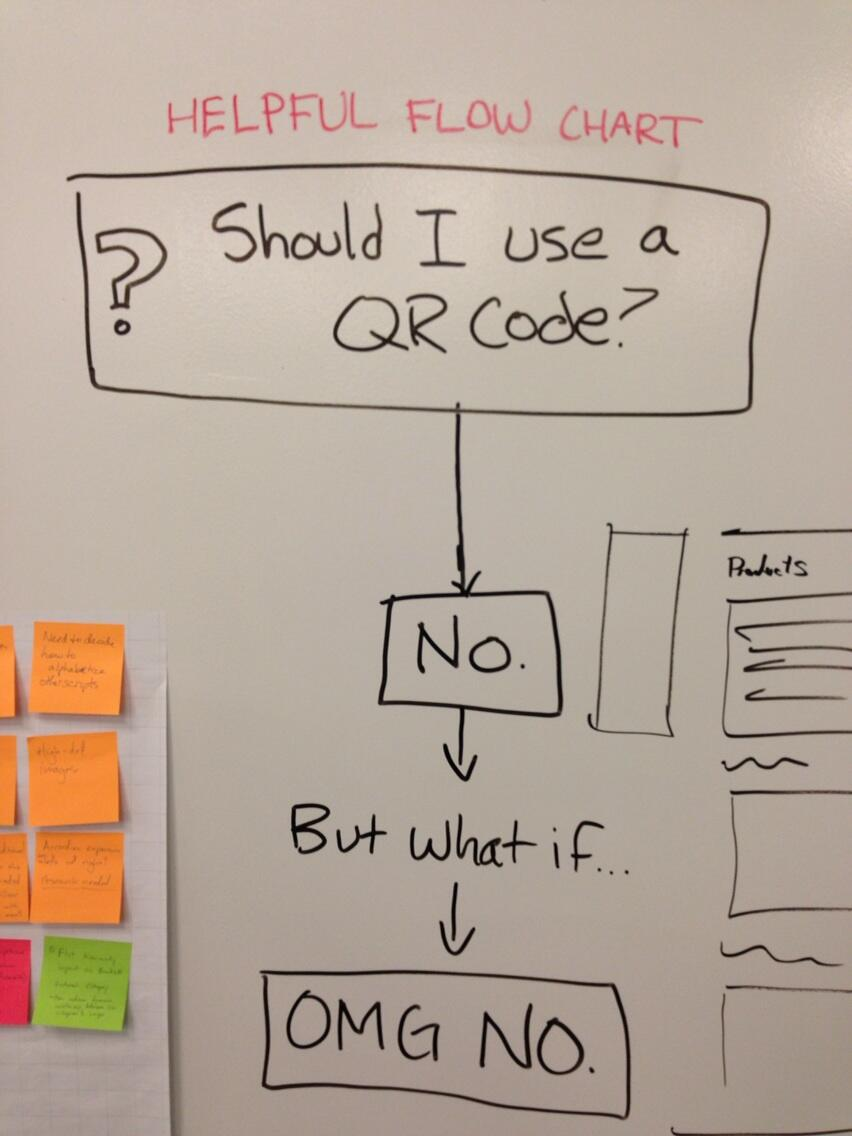 HELPFUL FLOW CHART
? Should I use a
QR Code?
No.
But what if...
OMG NO.
Products
Need to decide
how to
alphabetize
other scripts
High-def
images
Research needed